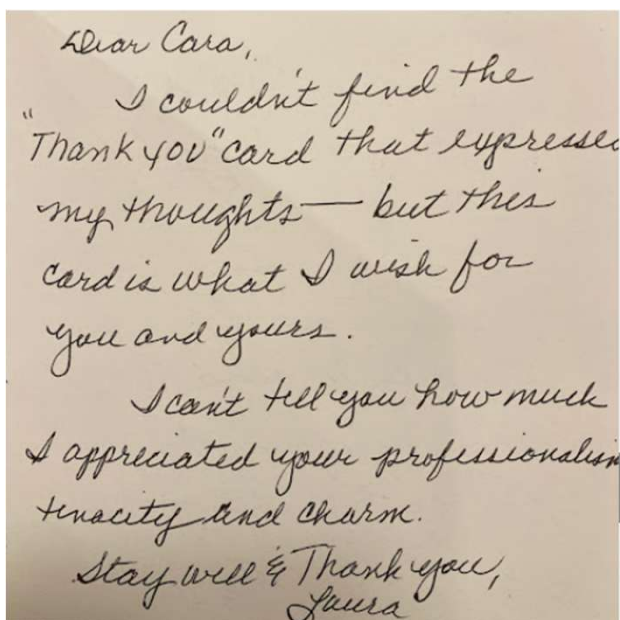 Dear Cara,
I couldn't find the
"Thank you" card that expressed
my thoughts — but this
card is what I wish for
you and yours.
I can't tell you how much
I appreciated your professionalism
tenacity and charm.
Stay well & Thank you,
Laura